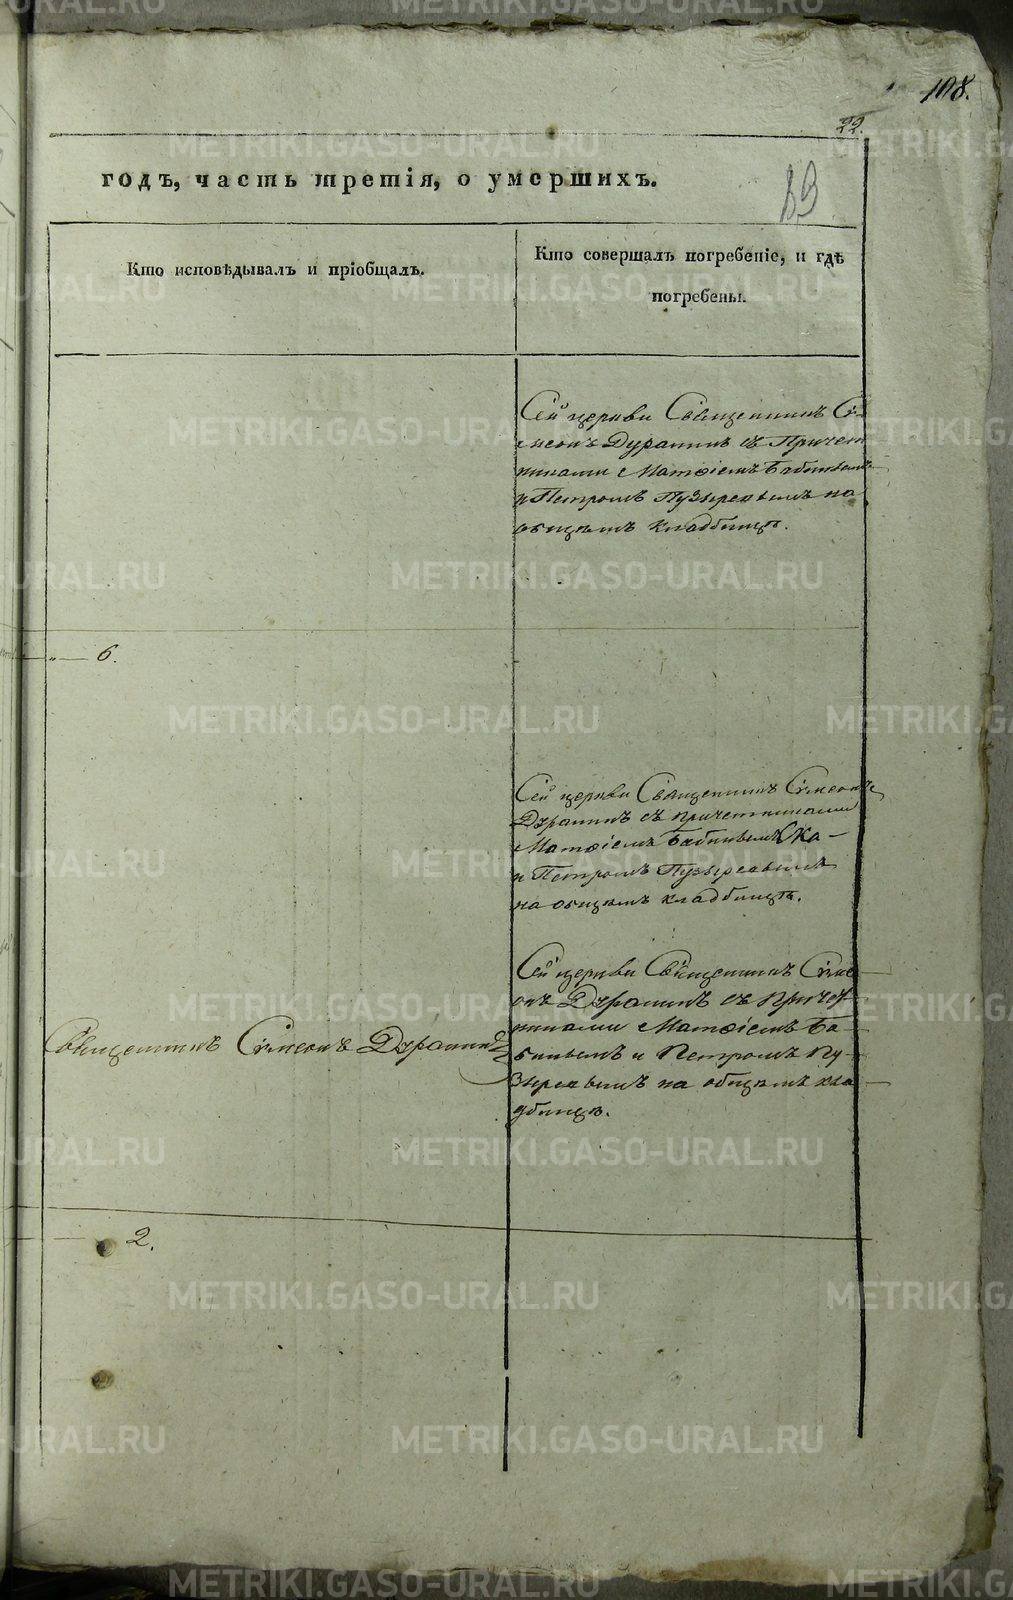 108.
22.
89
годъ, часть третія, о умершихъ.
Кто исповѣдывалъ и пріобщалъ.
Кто совершалъ погребеніе, и гдѣ
погребены.
Сей церкви Священникъ Сѵ-
меонъ Дурагинъ съ Причет
никами Матѳіемъ Бабинымъ
и Петромъ Пузыревымъ на
общемъ кладбищѣ.
6.
Сей церкви Священникъ Сѵмеонъ
Дурагинъ съ причетниками
Матѳіемъ Бабинымъ
и Петромъ Пузыревымъ
на общемъ кладбищѣ.
Сей церкви Священникъ Сѵме
онъ Дурагинъ съ причет
никами Матѳіемъ Ба-
бинымъ и Петромъ Пу-
зыревымъ на общемъ кла
дбищѣ.
Священникъ Сѵмеонъ Дурагинъ
2.
METRIKI.GASO-URAL.RU